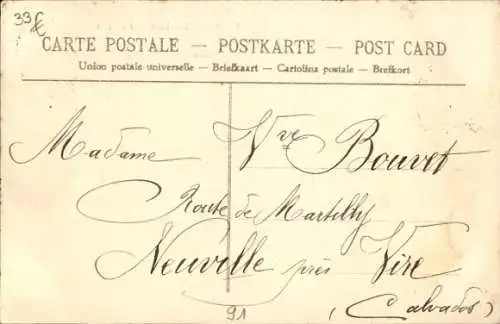 33 €
CARTE POSTALE — POSTKARTE — POST CARD
Union postale universelle — Briefkaart — Cartolina postale — Brefkort
Madame Vve Bouvet
Route de Martilly
Neuville près Vire
(Calvados)
91